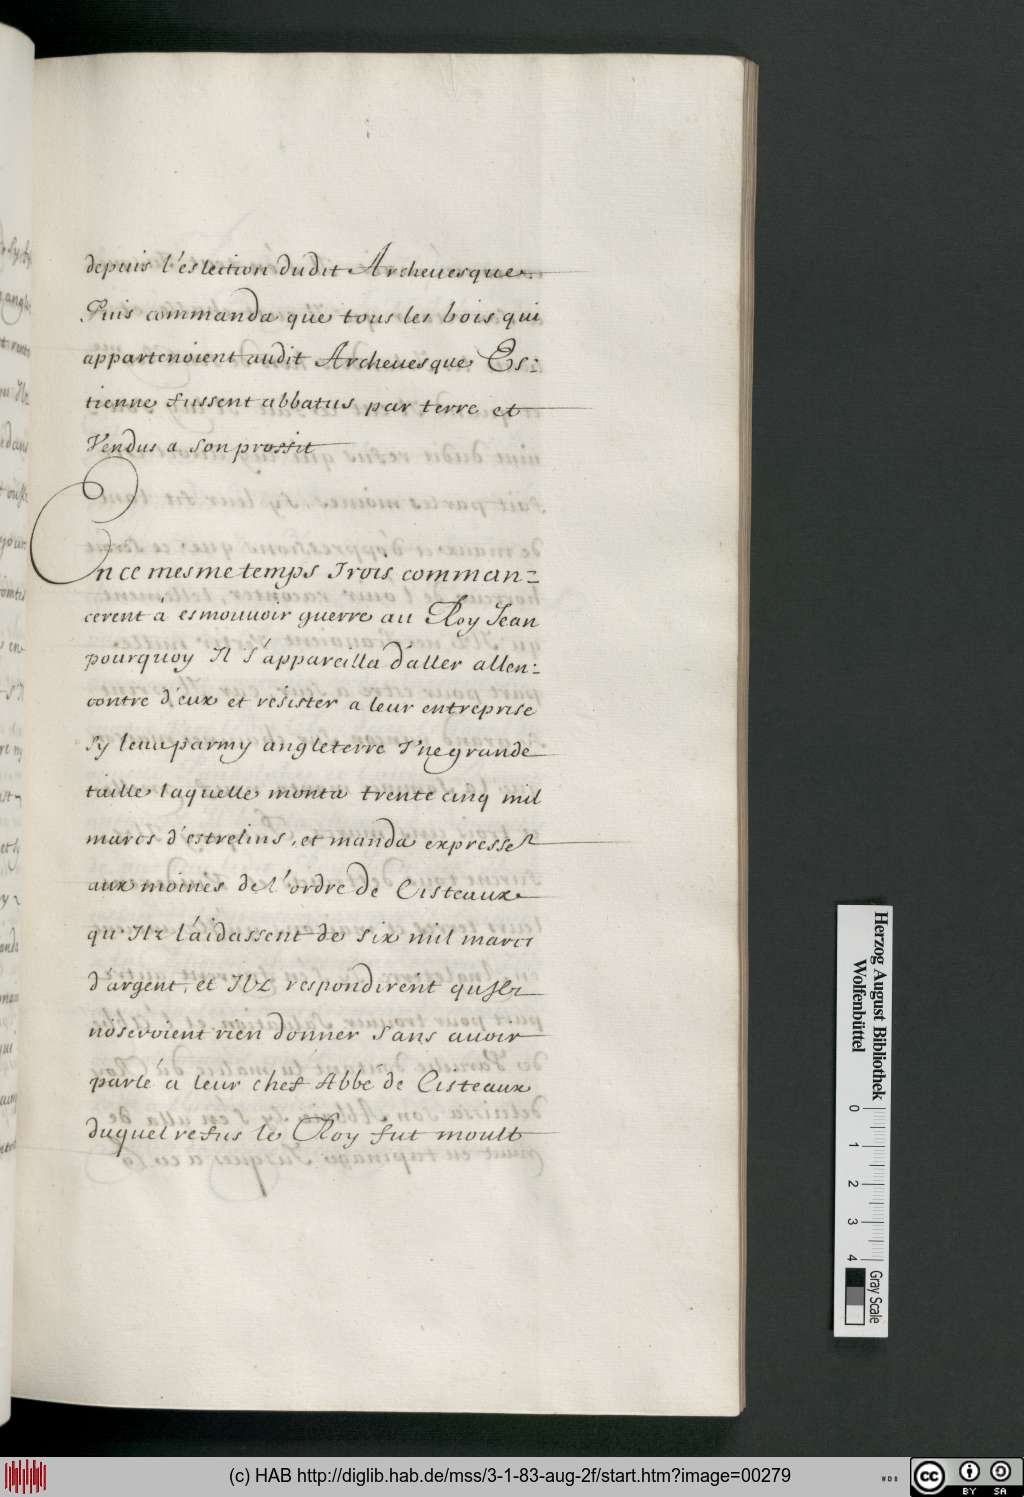 depuis l'eslection dudit Archeuesque.
Puis commanda que tous les bois qui
appartenoient audit Archeuesque Es:
tienne fussent abbatus par terre et
Vendus a son proffit
En ce mesme temps Irois comman=
cerent à esmouuoir guerre au Roy Jean
pourquoy Il s'appareilla d'aller allen:
contre d'eux et resister a leur entreprise
sy leua parmy angleterre Vne grande
taille laquelle monta trente cinq mil
marcs d'estrelins, et manda expresse
aux moines de l'ordre de Cisteaux
qu'Ilz l'aidassent de six mil marcs
d'argent, et Ilz respondirent qu'Ilz
n'oseroient rien donner sans auoir
parlé a leur chef Abbe de Cisteaux
duquel refus le Roy fut moult
Herzog August Bibliothek
Wolfenbüttel
0 1 2 3 4
Gray Scale
(c) HAB http://diglib.hab.de/mss/3-1-83-aug-2f/start.htm?image=00279
cc BY SA